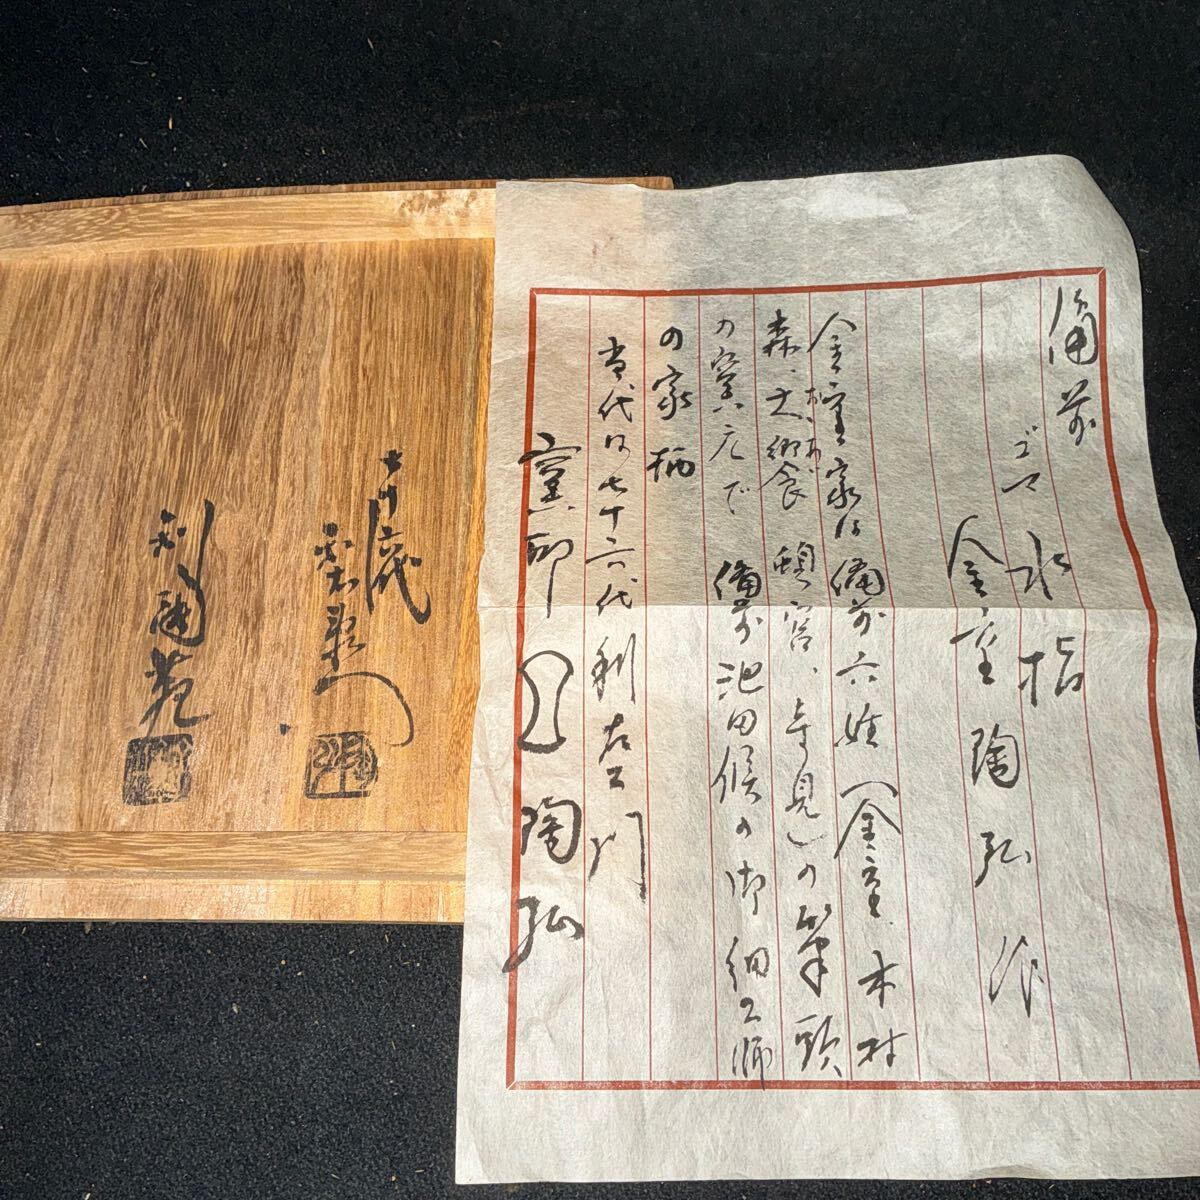 備前
ゴマ 水指
金重陶弘作
金重家は備前六姓(金重、木村
森、大饗、頓宮、寺見)の筆頭
の窯元で 備前池田候の御細工師
の家柄
当代は七十六代利左ヱ門
窯印 陶弘
七十六代
利陶苑